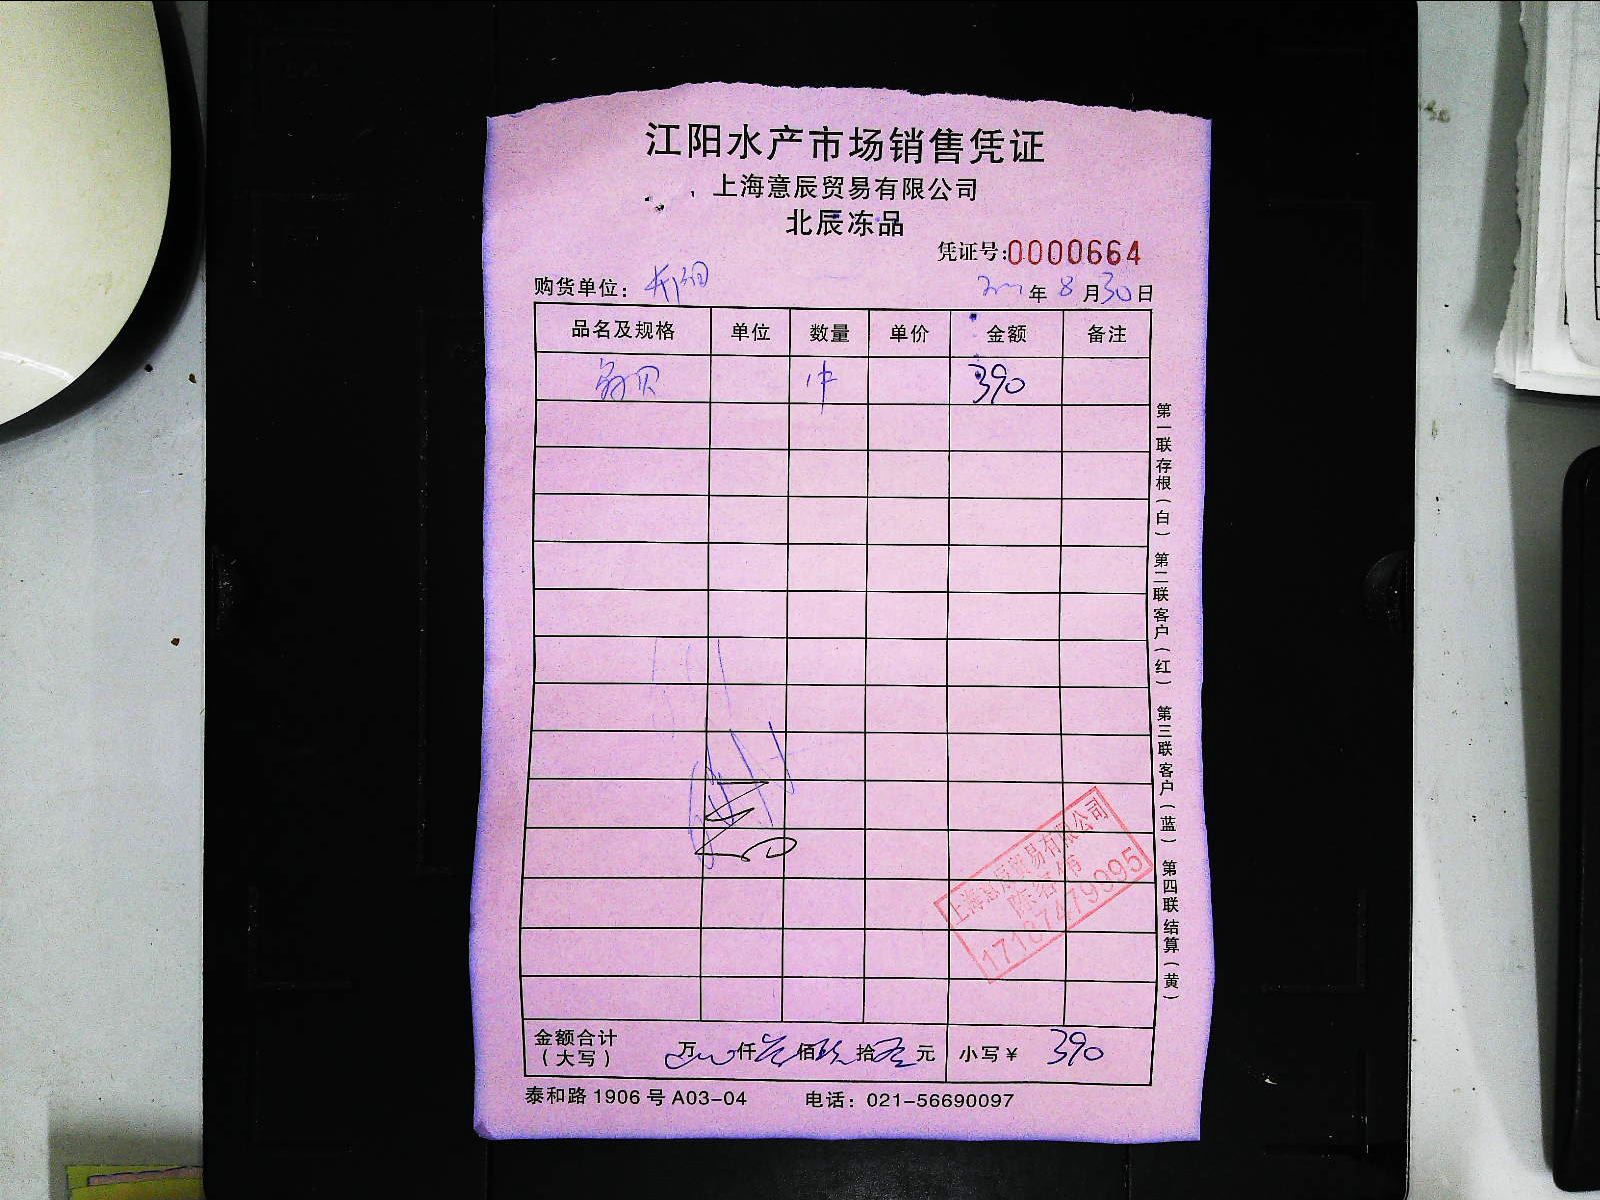 江阳水产市场销售凭证
上海意辰贸易有限公司
北辰冻品
凭证号:0000664
购货单位:
年 8 月 30 日
品名及规格 单位 数量 单价 金额 备注
贝 1件 390
第一联存根(白) 第二联客户(红) 第三联客户(蓝) 第四联结算(黄)
上海意辰贸易有限公司
金额合计 万 仟 佰 拾 元 小写¥ 390
(大写)
泰和路1906号A03-04 电话:021-56690097